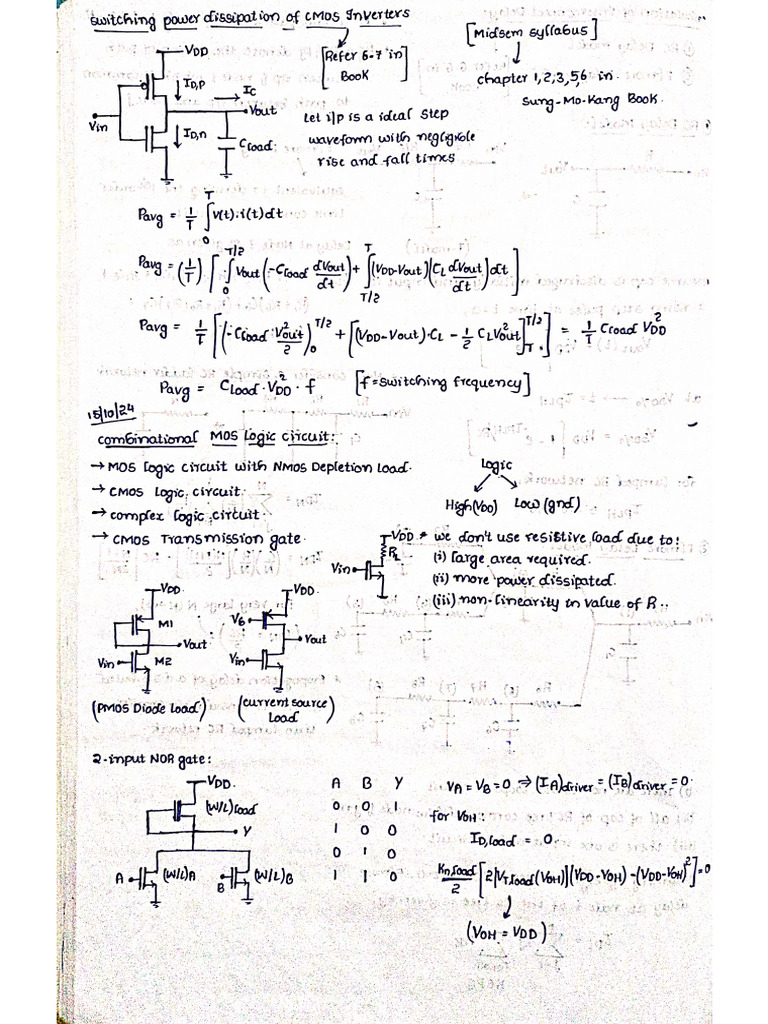 Switching power dissipation of CMOS Inverters
[Refer 6.7 in Book]
[Midsem syllabus]
chapter 1,2,3,5,6 in
Sung-Mo-Kang Book.
VDD
ID,P
IC
Vout
Vin
ID,n
Cload
Let i/p is a ideal step
waveform with negligible
rise and fall times
Pavg = 1/T ∫₀ᵀ v(t).i(t)dt
Pavg = (1/T) [ ∫₀^{T/2} Vout (-Cload dVout/dt) + ∫_{T/2}^{T} (VDD-Vout)(CL dVout/dt)dt ]
Pavg = 1/T [ (-Cload Vout²/2)₀^{T/2} + [(VDD-Vout).CL - 1/2 CL Vout²]_T^{T/2} ] = 1/T Cload VDD²
Pavg = CLoad.VDD².f [f=switching frequency]
15/10/24
combinational MOS Logic circuit:
→ MOS logic circuit with NMOS Depletion Load.
→ CMOS logic circuit.
→ complex logic circuit.
→ CMOS Transmission gate.
Logic
High(VDD) Low(gnd)
VDD
RL
Vin
* we don't use resistive load due to:
(i) large area required.
(ii) more power dissipated.
(iii) non-linearity in value of R.
VDD
M1
Vout
Vin
M2
(PMOS Diode Load)
VDD
VG
Vout
Vin
(current source Load)
2-input NOR gate:
VDD
(W/L)load
Y
A
(W/L)A
B
(W/L)B
A B Y
0 0 1
1 0 0
0 1 0
1 1 0
VA = VB = 0 → (IA)driver = (IB)driver = 0.
for VOH:
ID,load = 0
Kn,load/2 [2|VT,load(VOH)|(VDD-VOH) - (VDD-VOH)²] = 0
(VOH = VDD)